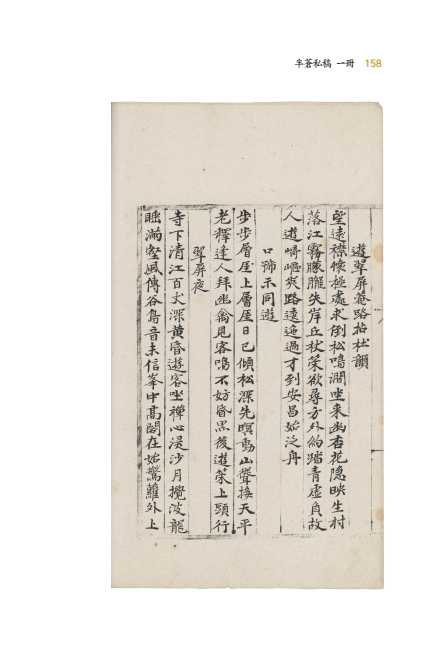 半蒼私稿 一冊 158
遊翠屏菴路拈杜韻
望遠襟懷極處求倒松鳴澗坐來幽杏花隱映生村
落江霧朦朧失岸丘杖策欲尋方外約踏青虛負故
人遊崎嶇爽路遠逶過才到安昌始泛舟
口號示同遊
步步層厓上層厓日已傾松深先暝動山聲換天平
老釋逢人拜幽禽見客鳴不妨昏黑後遊策上頭行
翠屏夜
寺下清江百丈深黄昏遊客坐禪心浸沙月攪波龍
睡滿壑風傳谷鳥音未信峯中高閣在始驚蘿外上